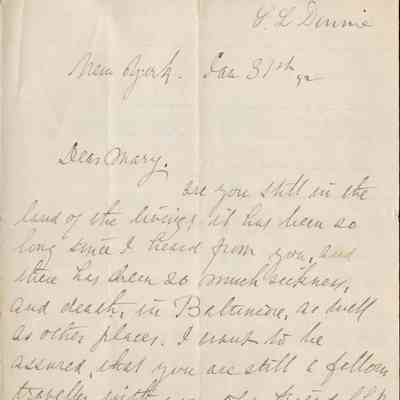 New York. Jan 31st
Dear Mary,
are you still in the
land of the living, it has been so
long since I heard from you, and
there has been so much sickness,
and death, in Baltimore, as well
as other places. I want to be
assured, that you are still a fellow
traveller with